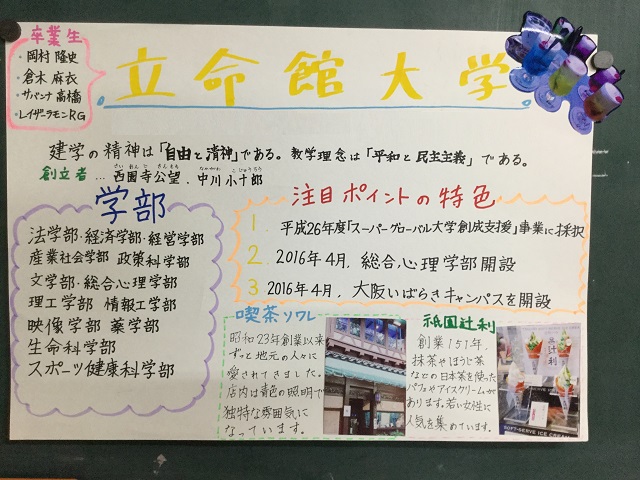 卒業生
・岡村 隆史
・倉木 麻衣
・サバンナ 高橋
・レイザーラモンRG
立命館大学
建学の精神は「自由と清神」である。教学理念は「平和と民主主義」である。
さい おん じ きん もち なかがわ こじゅうろう
創立者…西園寺公望、中川小十郎
学部
法学部・経済学部・経営学部
産業社会学部 政策科学部
文学部・総合心理学部
理工学部 情報工学部
映像学部 薬学部
生命科学部
スポーツ健康科学部
注目ポイントの特色
1. 平成26年度「スーパーグローバル大学創成支援」事業に採択
2. 2016年4月、総合心理学部開設
3 2016年4月、大阪いばらきキャンパスを開設
喫茶ソワレ
昭和23年創業以来
ずっと地元の人々に
愛されてきました。
店内は青色の照明で
独特な雰囲気に
なっています。
祇園辻利
創業151年、
抹茶やほうじ茶
などの日本茶を使った
パフェやアイスクリームが
あります。若い女性に
人気を集めています。
辻利
SOFT-SERVE ICE CREAM